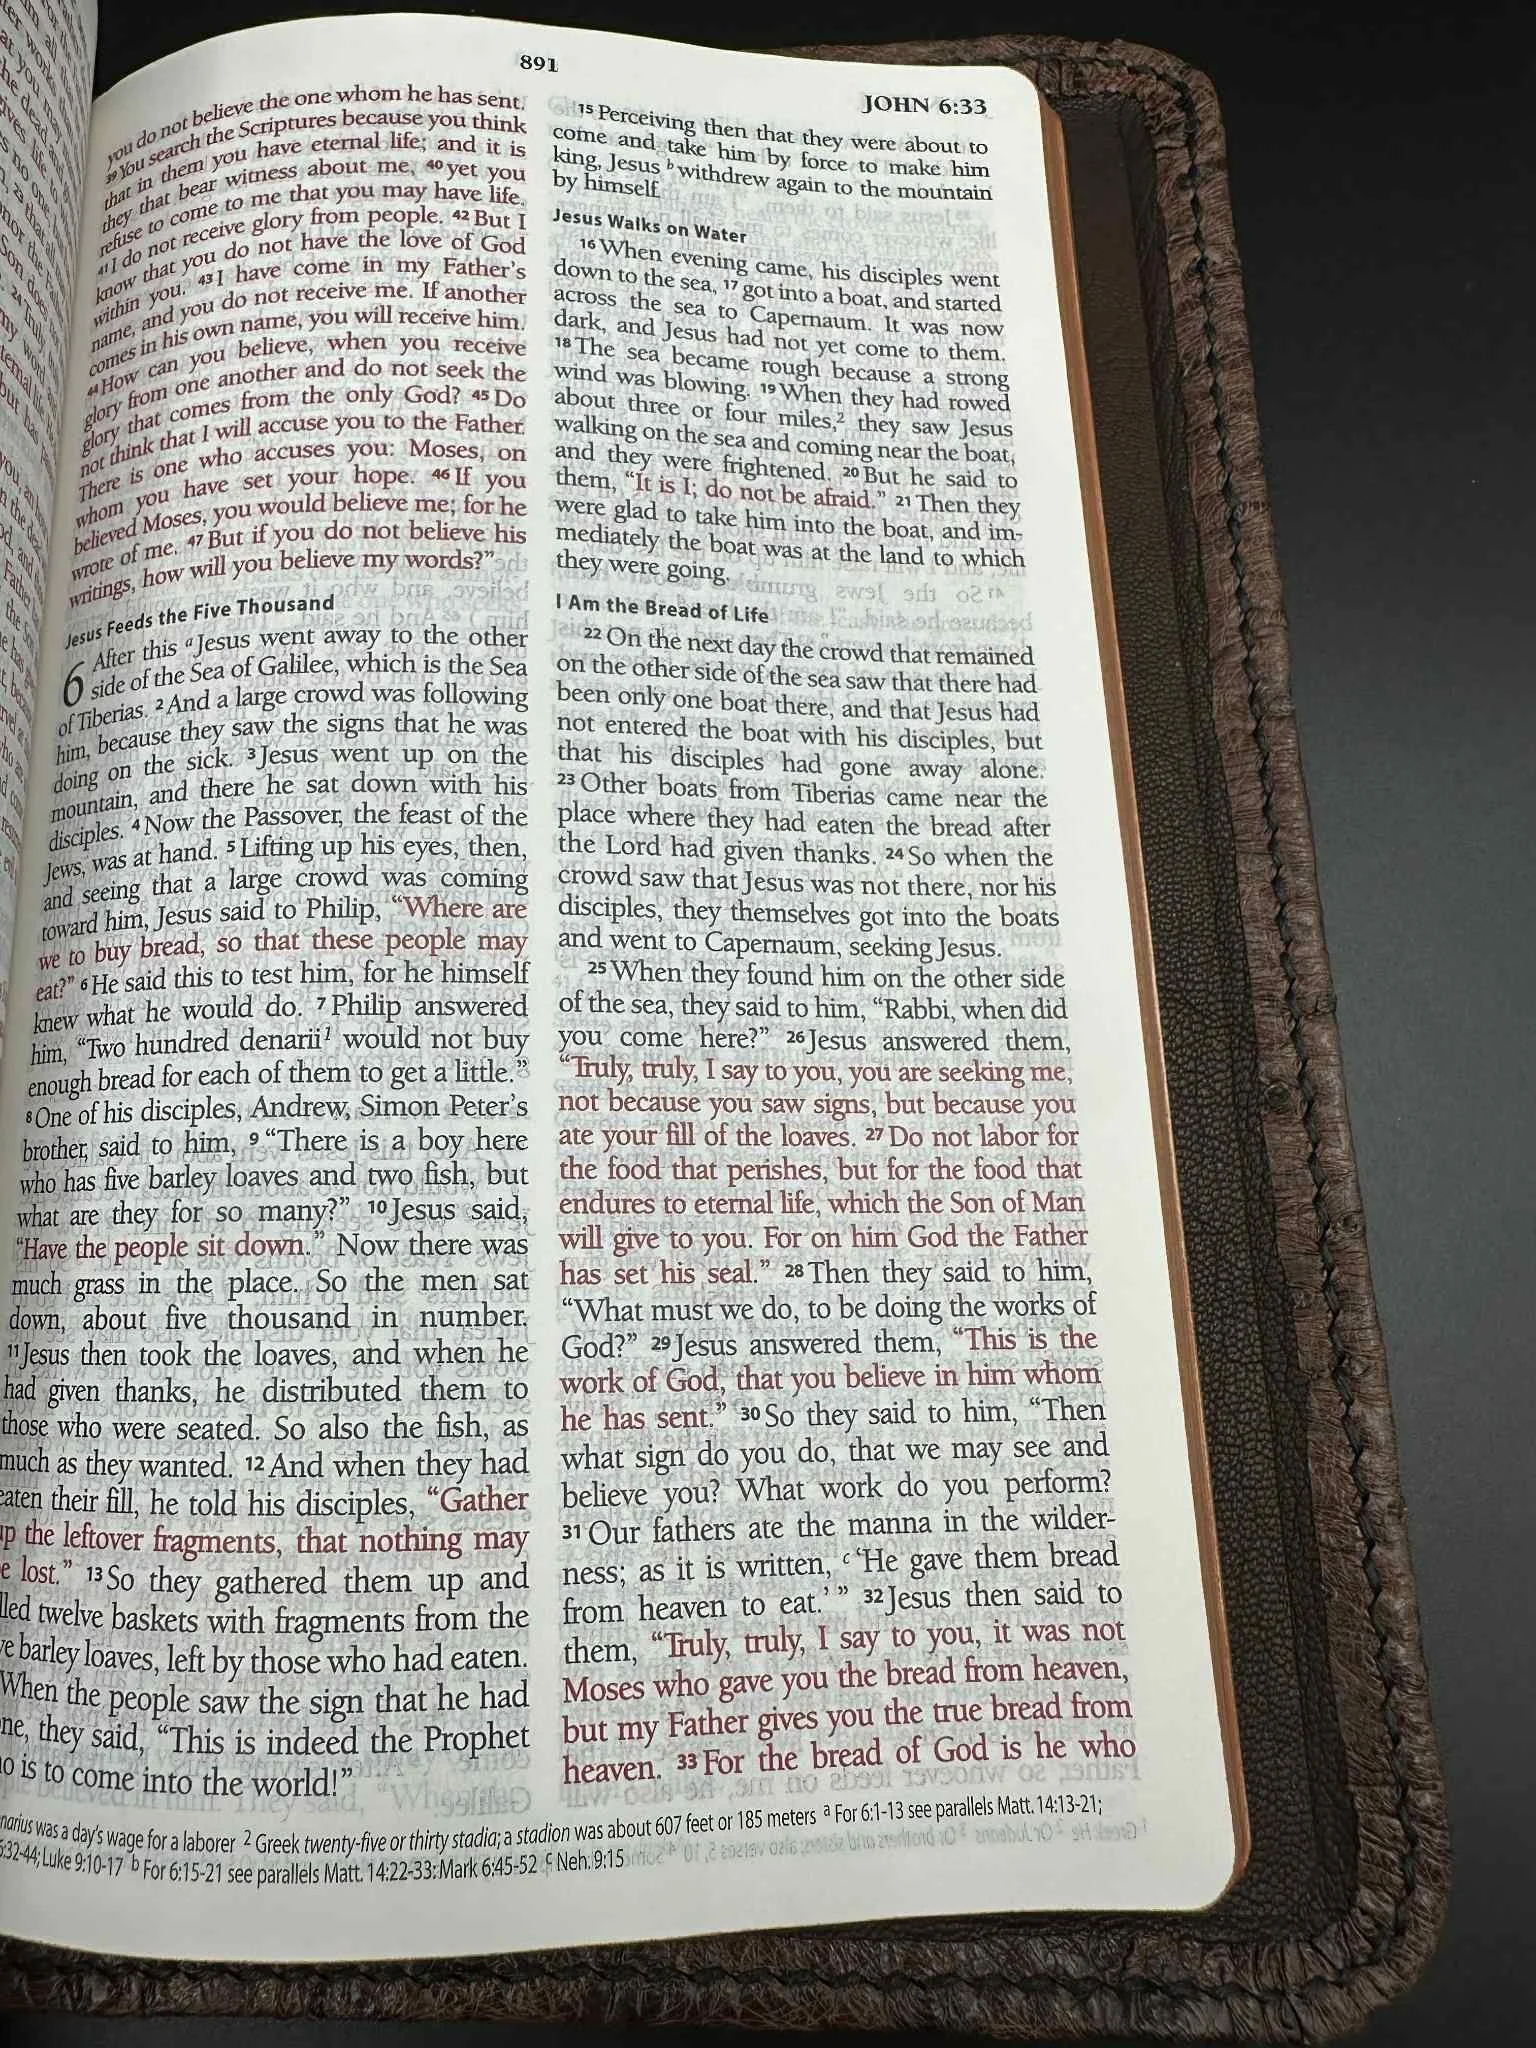 891
JOHN 6:33
you do not believe the one whom he has sent.
39 You search the Scriptures because you think
that in them you have eternal life; and it is
they that bear witness about me, 40 yet you
refuse to come to me that you may have life.
41 I do not receive glory from people. 42 But I
know that you do not have the love of God
within you. 43 I have come in my Father's
name, and you do not receive me. If another
comes in his own name, you will receive him.
44 How can you believe, when you receive
glory from one another and do not seek the
glory that comes from the only God? 45 Do
not think that I will accuse you to the Father.
There is one who accuses you: Moses, on
whom you have set your hope. 46 If you
believed Moses, you would believe me; for he
wrote of me. 47 But if you do not believe his
writings, how will you believe my words?”
Jesus Feeds the Five Thousand
6 After this a Jesus went away to the other
side of the Sea of Galilee, which is the Sea
of Tiberias. 2 And a large crowd was following
him, because they saw the signs that he was
doing on the sick. 3 Jesus went up on the
mountain, and there he sat down with his
disciples. 4 Now the Passover, the feast of the
Jews, was at hand. 5 Lifting up his eyes, then,
and seeing that a large crowd was coming
toward him, Jesus said to Philip, “Where are
we to buy bread, so that these people may
eat?” 6 He said this to test him, for he himself
knew what he would do. 7 Philip answered
him, “Two hundred denarii1 would not buy
enough bread for each of them to get a little.”
8 One of his disciples, Andrew, Simon Peter's
brother, said to him, 9 “There is a boy here
who has five barley loaves and two fish, but
what are they for so many?” 10 Jesus said,
“Have the people sit down.” Now there was
much grass in the place. So the men sat
down, about five thousand in number.
11 Jesus then took the loaves, and when he
had given thanks, he distributed them to
those who were seated. So also the fish, as
much as they wanted. 12 And when they had
eaten their fill, he told his disciples, “Gather
up the leftover fragments, that nothing may
lost.” 13 So they gathered them up and
twelve baskets with fragments from the
barley loaves, left by those who had eaten.
When the people saw the sign that he had
they said, “This is indeed the Prophet
is to come into the world!”
15 Perceiving then that they were about to
come and take him by force to make him
king, Jesus b withdrew again to the mountain
by himself.
Jesus Walks on Water
16 When evening came, his disciples went
down to the sea, 17 got into a boat, and started
across the sea to Capernaum. It was now
dark, and Jesus had not yet come to them.
18 The sea became rough because a strong
wind was blowing. 19 When they had rowed
about three or four miles,2 they saw Jesus
walking on the sea and coming near the boat,
and they were frightened. 20 But he said to
them, “It is I; do not be afraid.” 21 Then they
were glad to take him into the boat, and im-
mediately the boat was at the land to which
they were going.
I Am the Bread of Life
22 On the next day the crowd that remained
on the other side of the sea saw that there had
been only one boat there, and that Jesus had
not entered the boat with his disciples, but
that his disciples had gone away alone.
23 Other boats from Tiberias came near the
place where they had eaten the bread after
the Lord had given thanks. 24 So when the
crowd saw that Jesus was not there, nor his
disciples, they themselves got into the boats
and went to Capernaum, seeking Jesus.
25 When they found him on the other side
of the sea, they said to him, “Rabbi, when did
you come here?” 26 Jesus answered them,
“Truly, truly, I say to you, you are seeking me,
not because you saw signs, but because you
ate your fill of the loaves. 27 Do not labor for
the food that perishes, but for the food that
endures to eternal life, which the Son of Man
will give to you. For on him God the Father
has set his seal.” 28 Then they said to him,
“What must we do, to be doing the works of
God?” 29 Jesus answered them, “This is the
work of God, that you believe in him whom
he has sent.” 30 So they said to him, “Then
what sign do you do, that we may see and
believe you? What work do you perform?
31 Our fathers ate the manna in the wilder-
ness; as it is written, c ‘He gave them bread
from heaven to eat.’ ” 32 Jesus then said to
them, “Truly, truly, I say to you, it was not
Moses who gave you the bread from heaven,
but my Father gives you the true bread from
heaven. 33 For the bread of God is he who
was a day's wage for a laborer 2 Greek twenty-five or thirty stadia; a stadion was about 607 feet or 185 meters a For 6:1-13 see parallels Matt. 14:13-21;
6:32-44; Luke 9:10-17 b For 6:15-21 see parallels Matt. 14:22-33; Mark 6:45-52 c Neh. 9:15